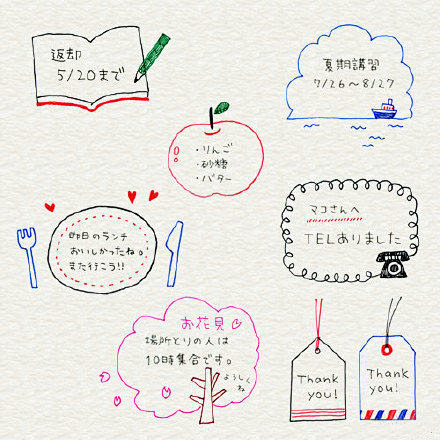 返却
5/20まで
夏期講習
7/26〜8/27
・りんご
・砂糖
・バター
昨日のランチ
おいしかったね。
また行こう!!
マコさんへ
TELありました
お花見
場所とりの人は
10時集合です。
ようしく
ね
Thank
you!
Thank
you!